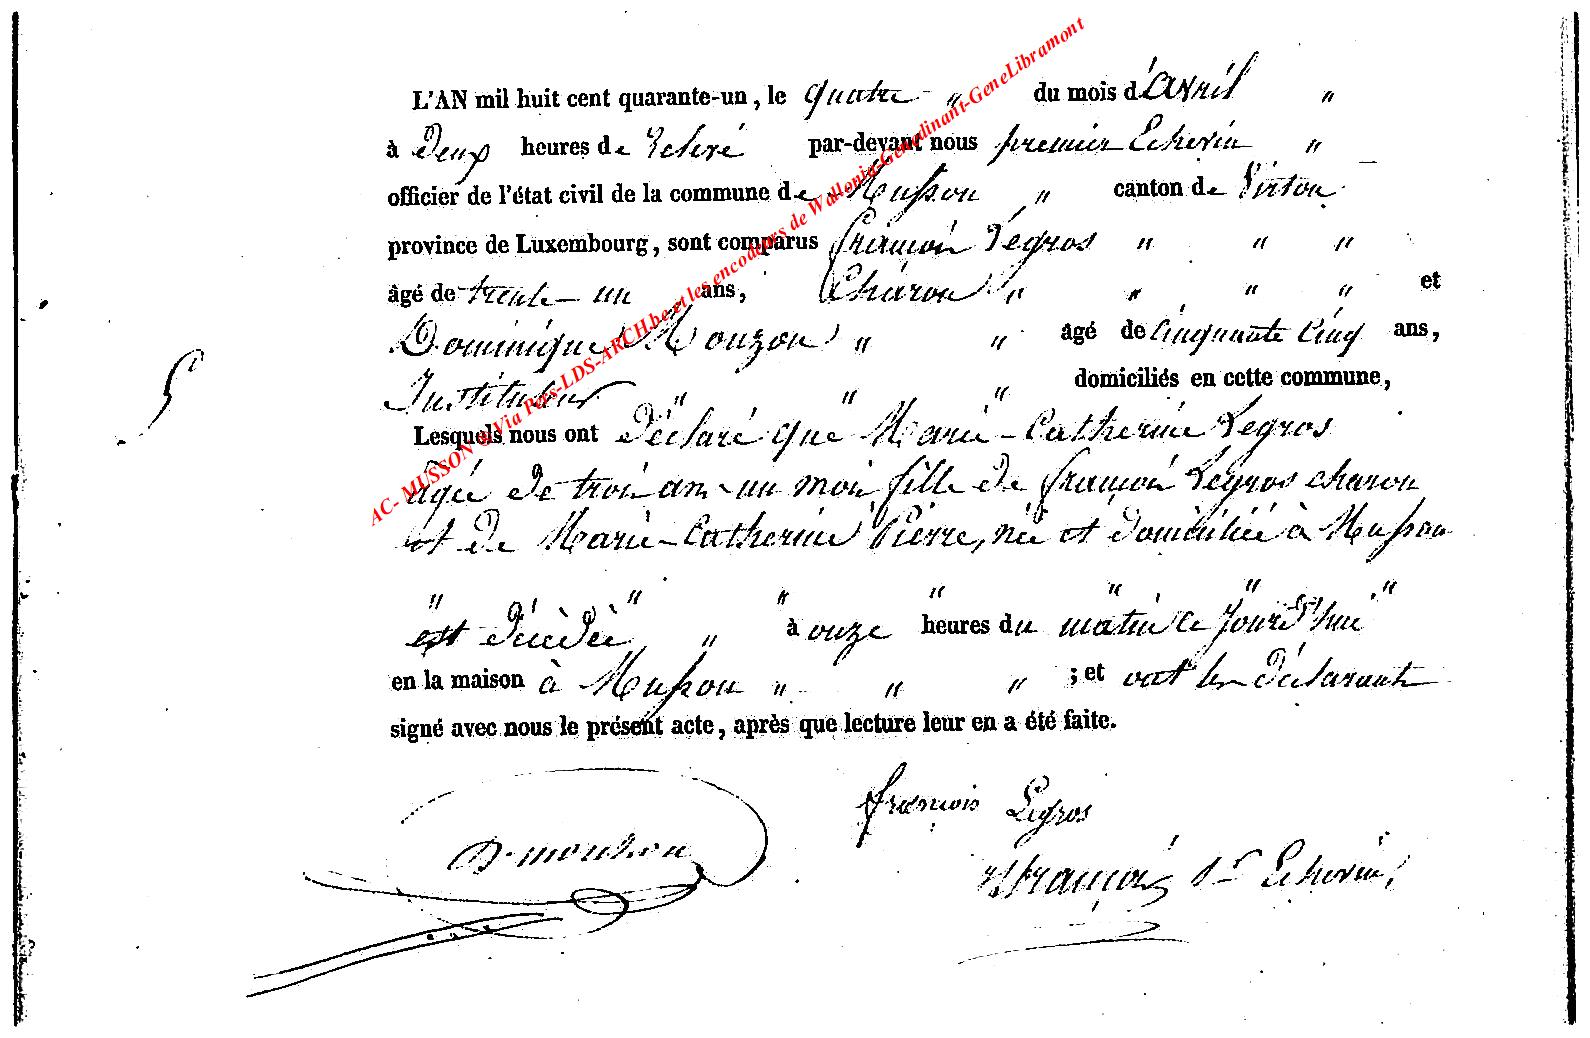 L'AN mil huit cent quarante-un, le quatre " du mois d'avril "
à Deux heures de relevé par-devant nous premier Echevin "
officier de l'état civil de la commune de Musson " canton de Virton
province de Luxembourg, sont comparus françois Legros " " "
âgé de trente-un ans, Charon " " " " et
Dominique Mouzon " " âgé de Cinquante Cinq ans,
Instituteur " " " domiciliés en cette commune,
Lesquels nous ont Déclaré que Marie-Catherine Legros
âgée de trois ans un mois fille de françois Legros charon
et de Marie-Catherine Pierre, née et domiciliée à Musson
" " " " " " "
est décèdée " à onze heures du matin ce jourd'hui
en la maison à Musson " " " ; et ont les Déclarants
signé avec nous le présent acte, après que lecture leur en a été faite.
5
D. mouzon
françois Legros
françois Echevin
AC- MUSSON @ Via Pers-LDS-ARCH.be et les encodeurs de Wallonia-Genedinant-GeneLibramont